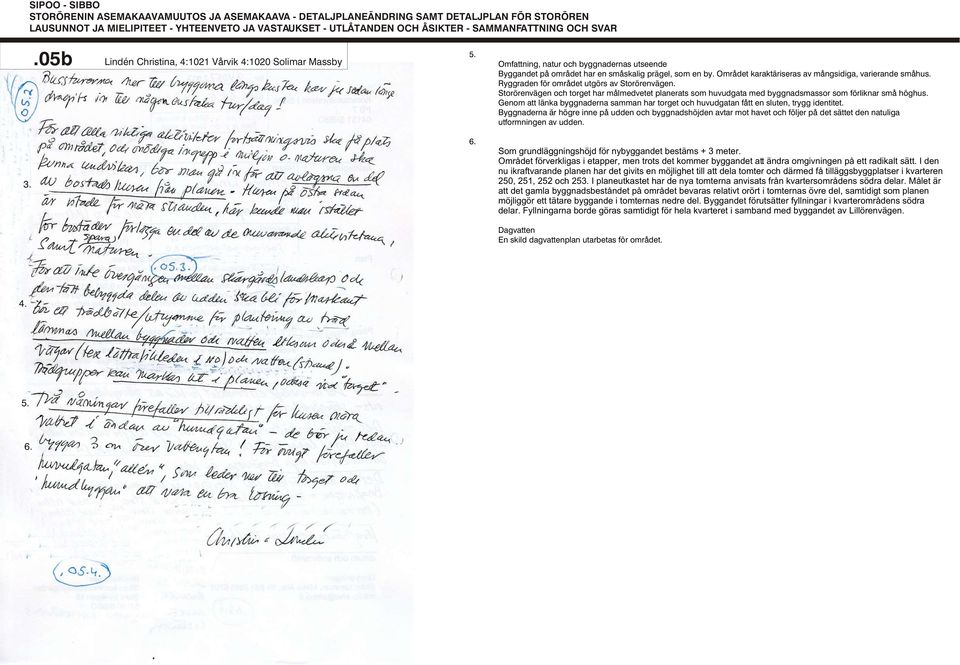 SIPOO - SIBBO
STORÖRENIN ASEMAKAAVAMUUTOS JA ASEMAKAAVA - DETALJPLANEÄNDRING SAMT DETALJPLAN FÖR STORÖREN
LAUSUNNOT JA MIELIPITEET - YHTEENVETO JA VASTAUKSET - UTLÅTANDEN OCH ÅSIKTER - SAMMANFATTNING OCH SVAR
.05b Lindén Christina, 4:1021 Vårvik 4:1020 Solimar Massby
05.2
Bussturerna ner till byggorna längs kusten har ju sedan länge
dragits in till någon enstaka tur/dag!
För att alla viktiga aktiviteter fortsättningsvis ska få plats
på området, och onödiga ingrepp i miljön o. naturen ska
kunna undvikas, bör man gå in för att avlägsna en del
3. av bostadshusen från planen - Husen på östra sidan
är ritade för nära stranden, här kunde man istället
för bostäder förlägga en del av de nuvarande aktivitetana,
samt spara naturen.
.05.3.
För att inte övergången mellan skärgårdslandskap och
den tätt bebyggda delen av udden ska bli för markant
4. bör ett trädbälte/utrymme för plantering av träd
lämnas mellan byggnader och vatten liksom också mellan
vägar (tex lättrafikleden i NO) och vatten (strand).
Trädgrupper kan märkas ut i planen, också vid "torget"
5. Två våningar förefaller tillräckligt för husen nära
vattnet i ändan av "huvudgatan" - de bör ju redan
6. byggas 3 m över vattenytan! För övrigt förefaller
huvudgatan, "allén", som leder ner till torget och
"huvudbyggan" att vara en bra lösning -
Christina Lindén
.05.4.
5.
Omfattning, natur och byggnadernas utseende
Byggandet på området har en småskalig prägel, som en by. Området karaktäriseras av mångsidiga, varierande småhus.
Ryggraden för området utgörs av Storörenvägen.
Storörenvägen och torget har målmedvetet planerats som huvudgata med byggnadsmassor som förliknar små höghus.
Genom att länka byggnaderna samman har torget och huvudgatan fått en sluten, trygg identitet.
Byggnaderna är högre inne på udden och byggnadshöjden avtar mot havet och följer på det sättet den natuliga
utformningen av udden.
6.
Som grundläggningshöjd för nybyggandet bestäms + 3 meter.
Området förverkligas i etapper, men trots det kommer byggandet att ändra omgivningen på ett radikalt sätt. I den
nu ikraftvarande planen har det givits en möjlighet till att stycka tomterna och därmed få tilläggsbyggplatser i kvarteren
250, 251, 252 och 253. I planeutkastet har de nya tomterna anvisats från kvartersområdens södra delar. Målet är
att det gamla byggnadsbeståndet på området bevaras relativt orört i tomternas övre del, samtidigt som planen
möjliggör ett tätare byggande i tomternas nedre del. Byggandet förutsätter fyllningar i kvarterområdens södra
delar. Fyllningarna borde göras samtidigt för hela kvarteret i samband med byggandet av Lillörenvägen.
Dagvatten
En skild dagvattenplan utarbetas för området.